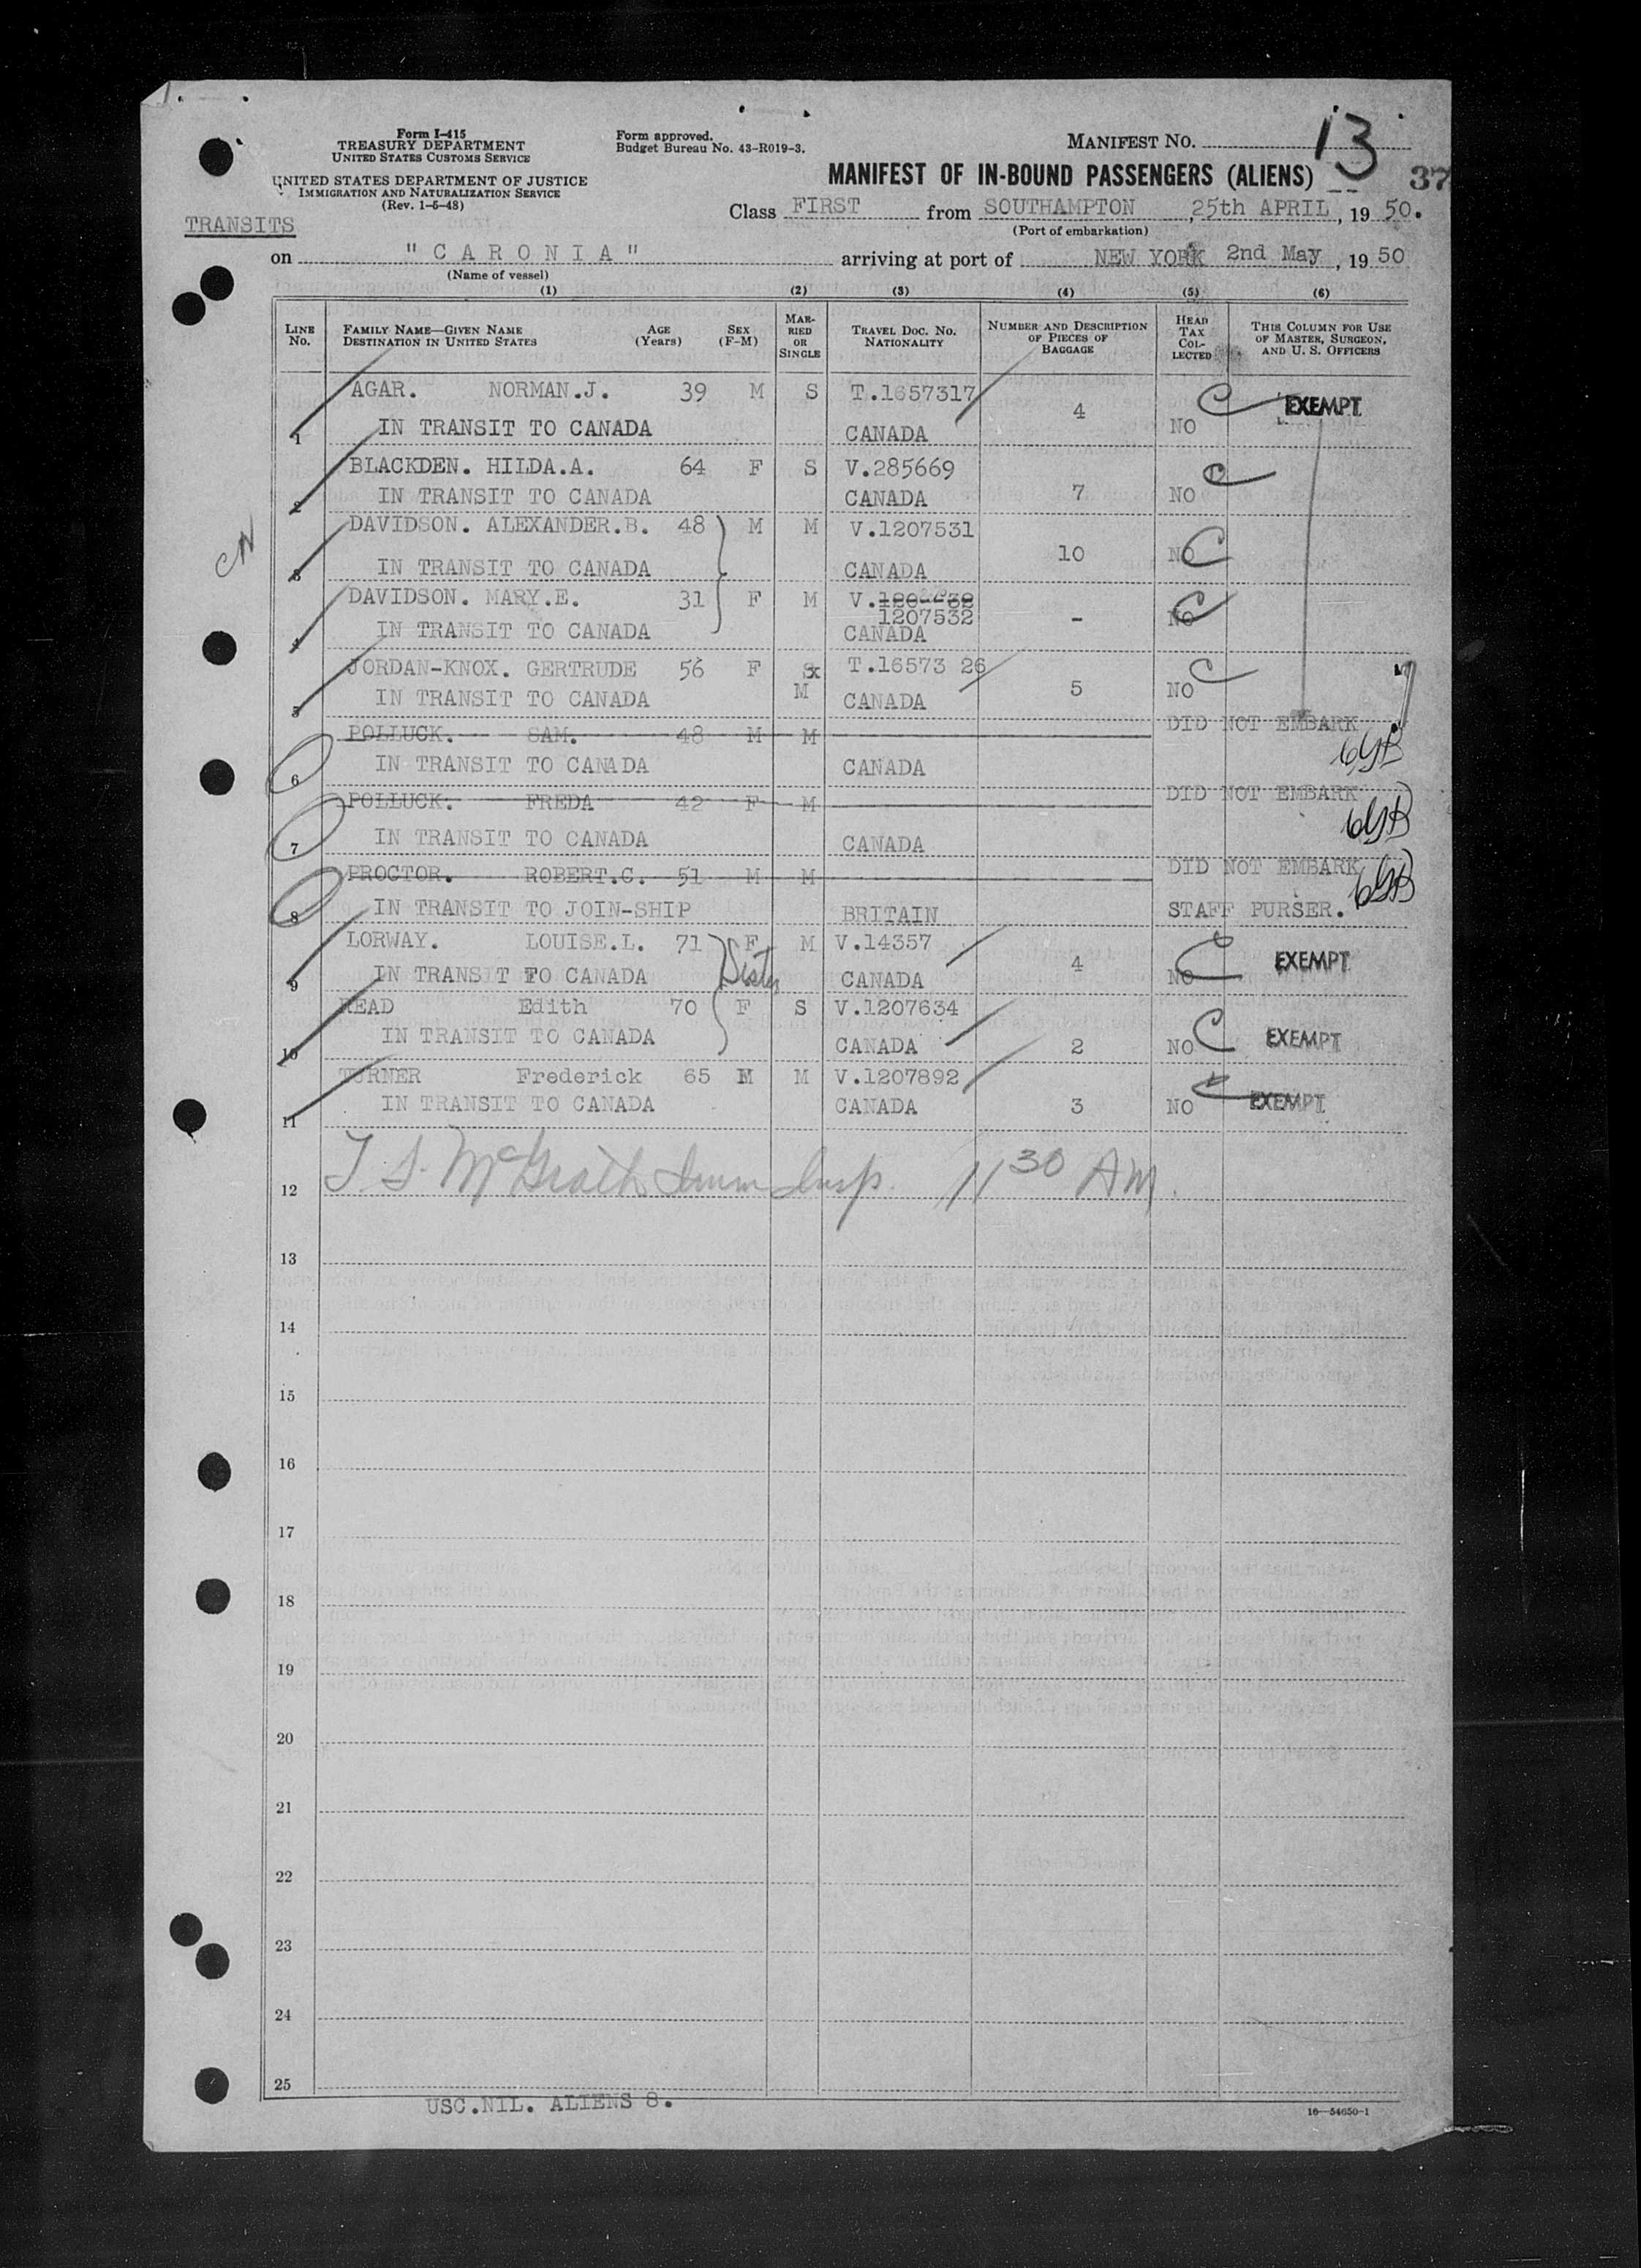 Form I-415
TREASURY DEPARTMENT
UNITED STATES CUSTOMS SERVICE
UNITED STATES DEPARTMENT OF JUSTICE
IMMIGRATION AND NATURALIZATION SERVICE
(Rev. 1-6-48)
Form approved.
Budget Bureau No. 43-R019-3.
MANIFEST NO. 13
MANIFEST OF IN-BOUND PASSENGERS (ALIENS) 37
TRANSITS
Class FIRST from SOUTHAMPTON, 25th APRIL, 19 50.
(Port of embarkation)
on "CARONIA" arriving at port of NEW YORK 2nd May, 19 50
(Name of vessel)
(1) (2) (3) (4) (5) (6)
LINE No. FAMILY NAME—GIVEN NAME DESTINATION IN UNITED STATES AGE (Years) SEX (F-M) MARRIED OR SINGLE TRAVEL DOC. NO. NATIONALITY NUMBER AND DESCRIPTION OF PIECES OF BAGGAGE HEAD TAX COLLECTED THIS COLUMN FOR USE OF MASTER, SURGEON, AND U. S. OFFICERS
AGAR. NORMAN.J. 39 M S T.1657317 4 C EXEMPT
1 IN TRANSIT TO CANADA CANADA NO
BLACKDEN. HILDA.A. 64 F S V.285669 C
2 IN TRANSIT TO CANADA CANADA 7 NO
CN
DAVIDSON. ALEXANDER.B. 48 M M V.1207531
3 IN TRANSIT TO CANADA CANADA 10 NO C
DAVIDSON. MARY.E. 31 F M V.
1207532
4 IN TRANSIT TO CANADA CANADA - NO C
JORDAN-KNOX. GERTRUDE 56 F Sx T.16573 26 C
M
5 IN TRANSIT TO CANADA CANADA 5 NO
POLLUCK. SAM. 48 M M DID NOT EMBARK
6 IN TRANSIT TO CANADA CANADA
POLLUCK. FREDA 42 F M DID NOT EMBARK
7 IN TRANSIT TO CANADA CANADA
PROCTOR. ROBERT.C. 51 M M DID NOT EMBARK
8 IN TRANSIT TO JOIN-SHIP BRITAIN STAFF PURSER.
LORWAY. LOUISE.L. 71 F M V.14357 4 C EXEMPT
Sister
9 IN TRANSIT TO CANADA CANADA NO
READ Edith 70 F S V.1207634
10 IN TRANSIT TO CANADA CANADA 2 NO C EXEMPT
TURNER Frederick 65 M M V.1207892
11 IN TRANSIT TO CANADA CANADA 3 NO C EXEMPT
12 T. S. McGrath Imm Insp. 11 30 AM.
13
14
15
16
17
18
19
20
21
22
23
24
25
USC.NIL. ALIENS 8.
16—54650-1